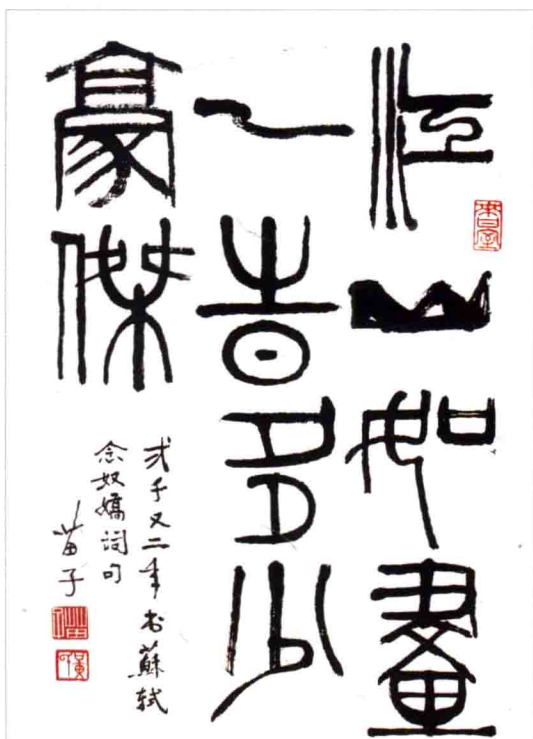 江山如畫
一旹多少
豪傑
弍千又二年书蘇轼
念奴嬌詞句
苗子